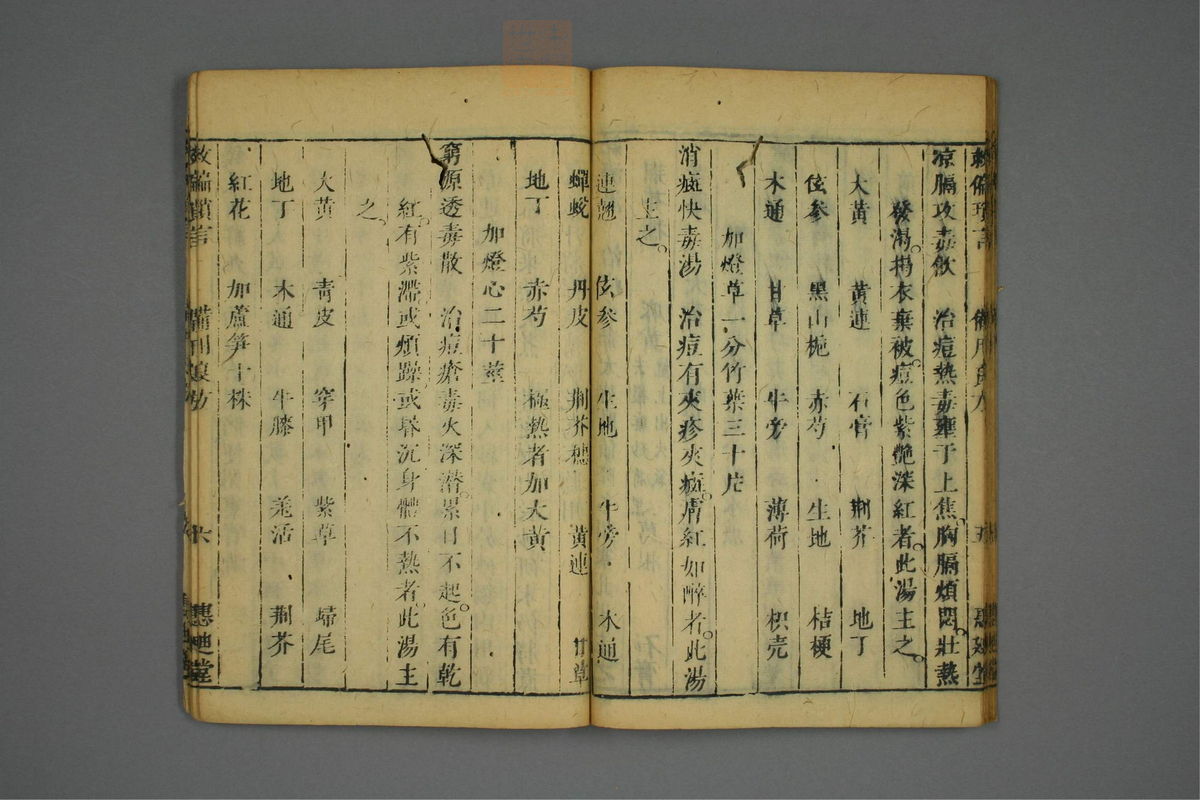 救偏瑣言 備用良方 五 惠迪堂
凉膈攻毒飲 治痘熱毒壅于上焦胸膈煩悶壯熱
發渴揭衣棄被痘色紫艷深紅者此湯主之
大黄 黄連 石膏 荆芥 地丁
玄參 黑山梔 赤芍 生地 桔梗
木通 甘草 牛旁 薄荷 枳壳
加燈草一分竹葉三十片
消斑快毒湯 治痘有夾疹夾斑膚紅如醉者此湯
主之
連翹 玄參 生地 牛旁 木通
蟬蛻 丹皮 荆芥穗 黄連 甘草
地丁 赤芍 極熱者加大黄
加燈心二十莖
窮源透毒散 治痘瘡毒火深潛累日不起色有乾
紅有紫滯或煩躁或昏沉身體不熱者此湯主
之
大黄 青皮 穿甲 紫草 歸尾
地丁 木通 牛膝 羌活 荆芥
紅花 加蘆笋十株
救偏瑣言 備用良方 六 惠迪堂